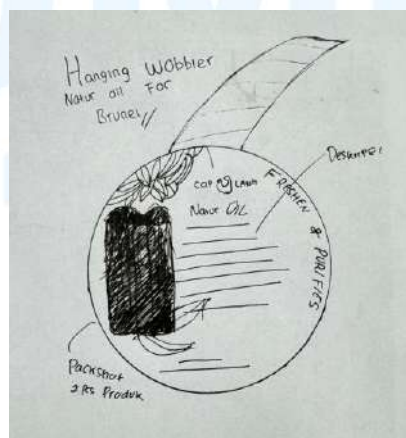 Hanging Wobbler
Natur oil For
Brunei //
Deskripsi
CAP LANG
Natur OIL
FRESHEN & PURIFIES
Packshot
2 Pcs Produk